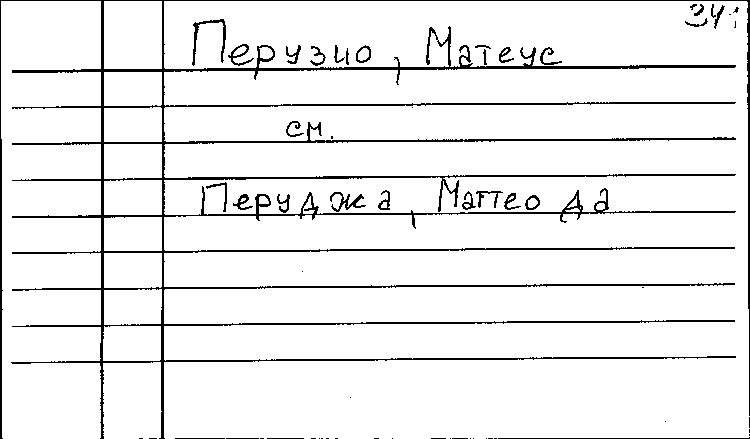 Перузио, Матеус
см.
Перуджа, Маттео да